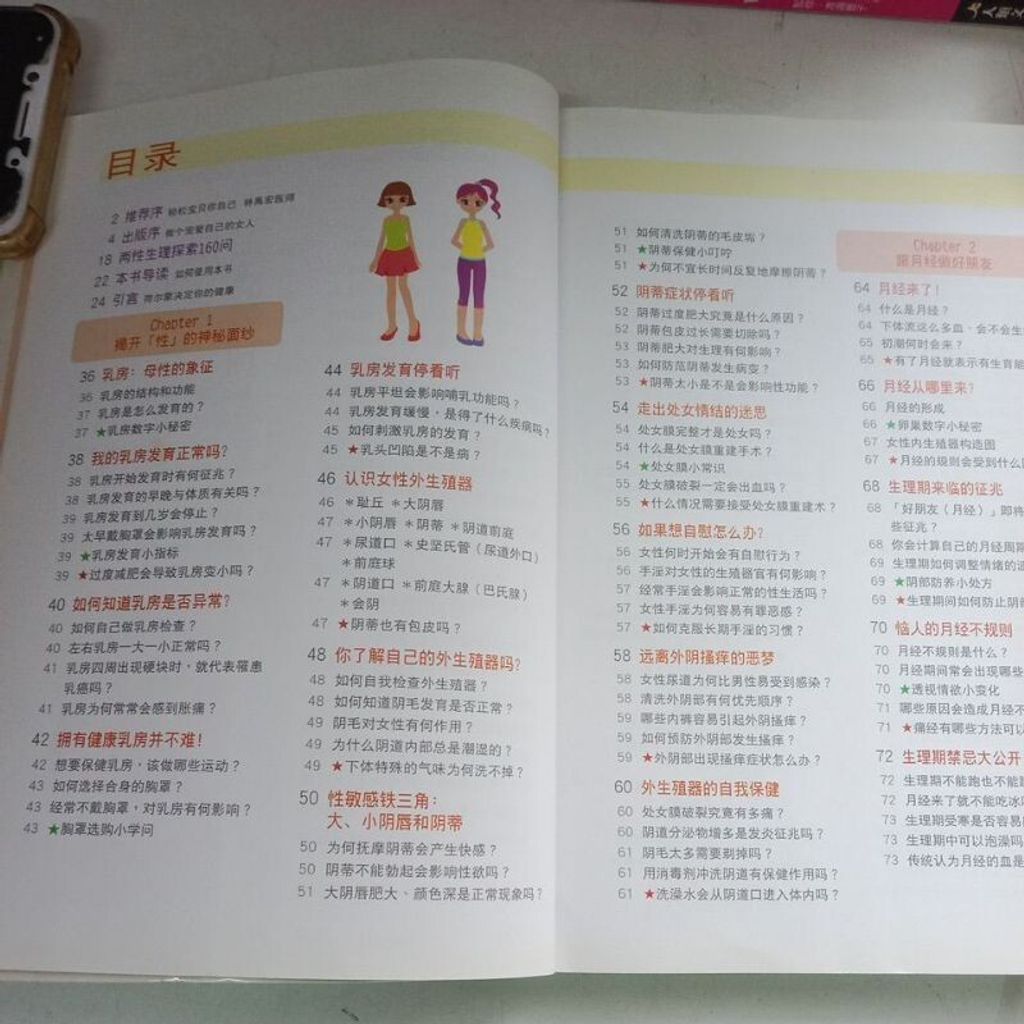 目录
2 推荐序 轻松宝贝你自己 钟禹宏医师
4 出版序 做个宠爱自己的女人
18 两性生理探索160问
22 本书导读 如何使用本书
24 引言 荷尔蒙决定你的健康
Chapter 1
揭开「性」的神秘面纱
36 乳房：母性的象征
36 乳房的结构和功能
37 乳房是怎么发育的？
37 ★乳房数字小秘密
38 我的乳房发育正常吗?
38 乳房开始发育时有何征兆？
38 乳房发育的早晚与体质有关吗？
39 乳房发育到几岁会停止？
39 太早戴胸罩会影响乳房发育吗？
39 ★乳房发育小指标
39 ★过度减肥会导致乳房变小吗？
40 如何知道乳房是否异常?
40 如何自己做乳房检查？
40 左右乳房一大一小正常吗？
41 乳房四周出现硬块时，就代表罹患
乳癌吗？
41 乳房为何常常会感到胀痛？
42 拥有健康乳房并不难!
42 想要保健乳房，该做哪些运动？
43 如何选择合身的胸罩？
43 经常不戴胸罩，对乳房有何影响？
43 ★胸罩选购小学问
44 乳房发育停看听
44 乳房平坦会影响哺乳功能吗？
44 乳房发育缓慢，是得了什么疾病吗？
45 如何刺激乳房的发育？
45 ★乳头凹陷是不是病？
46 认识女性外生殖器
46 ＊耻丘 ＊大阴唇
47 ＊小阴唇 ＊阴蒂 ＊阴道前庭
47 ＊尿道口 ＊史坚氏管（尿道外口）
＊前庭球
47 ＊阴道口 ＊前庭大腺（巴氏腺）
＊会阴
47 ★阴蒂也有包皮吗？
48 你了解自己的外生殖器吗?
48 如何自我检查外生殖器？
48 如何知道阴毛发育是否正常？
49 阴毛对女性有何作用？
49 为什么阴道内部总是潮湿的？
49 ★下体特殊的气味为何洗不掉？
50 性敏感铁三角：
大、小阴唇和阴蒂
50 为何抚摩阴蒂会产生快感？
50 阴蒂不能勃起会影响性欲吗？
51 大阴唇肥大、颜色深是正常现象吗？
51 如何清洗阴蒂的毛皮垢？
51 ★阴蒂保健小叮咛
51 ★为何不宜长时间反复地摩擦阴蒂？
52 阴蒂症状停看听
52 阴蒂过度肥大究竟是什么原因？
52 阴蒂包皮过长需要切除吗？
53 阴蒂肥大对生理有何影响？
53 如何防范阴蒂发生病变？
53 ★阴蒂太小是不是会影响性功能？
54 走出处女情结的迷思
54 处女膜完整才是处女吗？
54 什么是处女膜重建手术？
54 ★处女膜小常识
55 处女膜破裂一定会出血吗？
55 ★什么情况需要接受处女膜重建术？
56 如果想自慰怎么办?
56 女性何时开始会有自慰行为？
56 手淫对女性的生殖器官有何影响？
57 经常手淫会影响正常的性生活吗？
57 女性手淫为何容易有罪恶感？
57 ★如何克服长期手淫的习惯？
58 远离外阴搔痒的恶梦
58 女性尿道为何比男性易受到感染？
58 清洗外阴部有何优先顺序？
59 哪些内裤容易引起外阴搔痒？
59 如何预防外阴部发生搔痒？
59 ★外阴部出现搔痒症状怎么办？
60 外生殖器的自我保健
60 处女膜破裂究竟有多痛？
60 阴道分泌物增多是发炎征兆吗？
61 阴毛太多需要剃掉吗？
61 用消毒剂冲洗阴道有保健作用吗？
61 ★洗澡水会从阴道口进入体内吗？
Chapter 2
跟月经做好朋友
64 月经来了!
64 什么是月经？
64 下体流这么多血，会不会生
65 初潮何时会来？
65 ★有了月经就表示有生育能
66 月经从哪里来?
66 月经的形成
66 ★卵巢数字小秘密
67 女性内生殖器构造图
67 ★月经的规则会受到什么
68 生理期来临的征兆
68 「好朋友（月经）」即将
些征兆？
68 你会计算自己的月经周期
69 生理期如何调整情绪的
69 ★阴部防养小处方
69 ★生理期间如何防止阴
70 恼人的月经不规则
70 月经不规则是什么？
70 月经期间常会出现哪些
70 ★透视情欲小变化
71 哪些原因会造成月经不
71 ★痛经有哪些方法可以
72 生理期禁忌大公开
72 生理期不能跑也不能
72 月经来了就不能吃冰
73 生理期受寒是否容易
73 生理期中可以泡澡吗
73 传统认为月经的血是